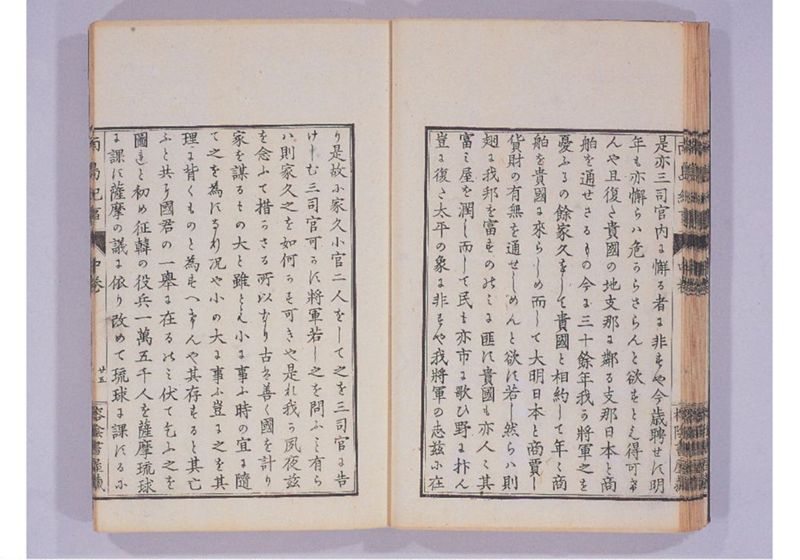 是亦三司官内に懈る者に非すや今歳聘せす明
年も亦懈らハ危からさらんと欲すとも得可ら
んや且復た貴國の地支那に鄰る支那日本と商
舶を通せさるもの今に三十餘年我か將軍之を
憂ふるの餘家久をして貴國と相約して年々商
舶を貴國に來らしめ而して大明日本と商賈し
貨財の有無を通せしめんと欲す若し然らハ則
翅に我邦を富すのミに匪す貴國も亦人々其
富ミ屋を潤し而して民も亦市に歌ひ野に抃ん
豈に復た太平の象に非すや我將軍の志玆に在
り是故に家久小官二人をして之を三司官に告
けしむ三司官可かす將軍若し之を問ふこと有ら
ハ則家久之を如何かす可きや是れ我か夙夜玆
を念ふて措かさる所以なり古の善く國を計り
家を謀るもの大と雖とも小に事ふ時の宜に隨
て之を為するあり况や小の大に事ふ豈に之を其
理に背くものと為すへけんや其存すると其亡
ふと共に國君の一擧に在るのミ伏て乞ふ之を
圖れと初め征韓の役兵一萬五千人を薩摩琉球
に課す薩摩の議に依り改めて琉球に課するに
南島紀事
中卷
廿五
書屋藏